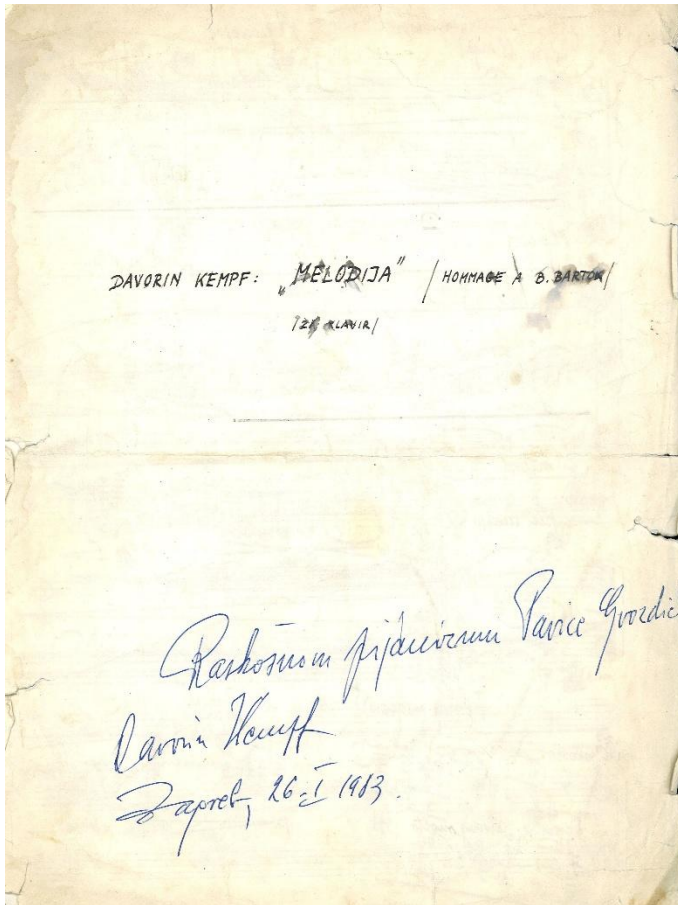 DAVORIN KEMPF: „MELODIJA" /HOMMAGE A B. BARTOK/
/ZA KLAVIR/
Raskošnom pijanizmu Pavice Gvozdić
Davorin Kempf
Zagreb, 26-I 1983.